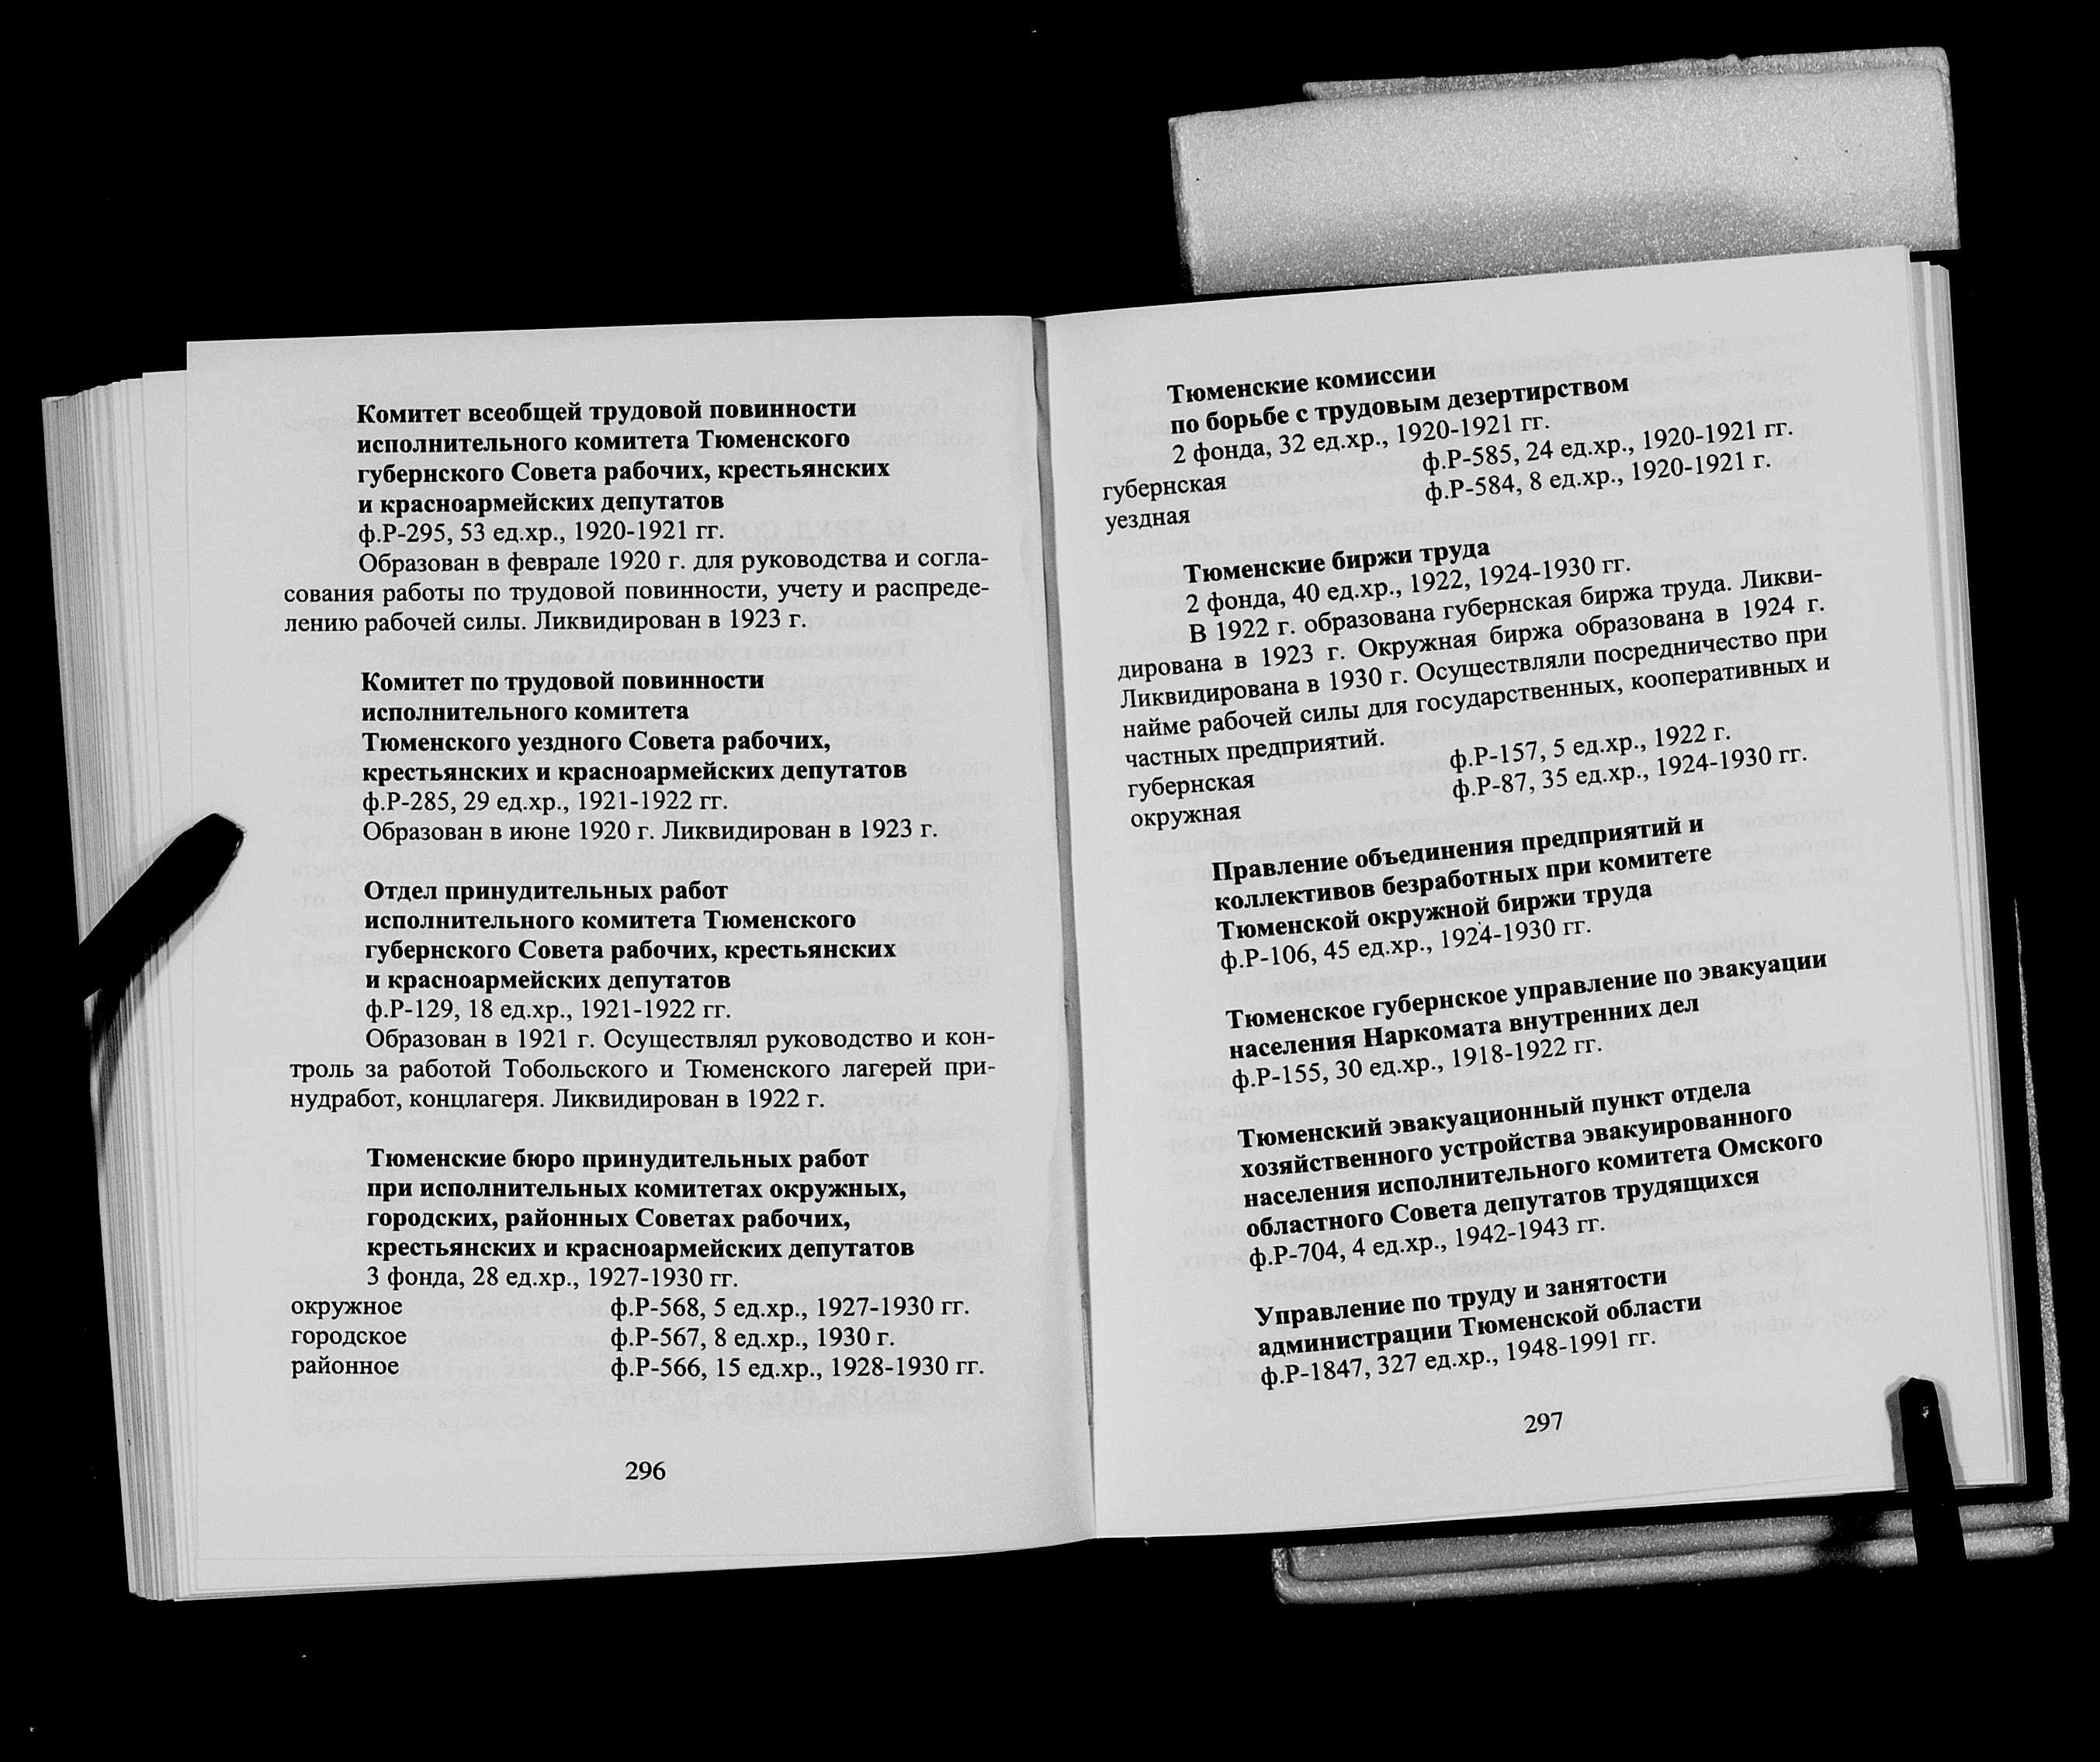 Комитет всеобщей трудовой повинности
исполнительного комитета Тюменского
губернского Совета рабочих, крестьянских
и красноармейских депутатов
ф.Р-295, 53 ед.хр., 1920-1921 гг.
Образован в феврале 1920 г. для руководства и согла-
сования работы по трудовой повинности, учету и распреде-
лению рабочей силы. Ликвидирован в 1923 г.
Комитет по трудовой повинности
исполнительного комитета
Тюменского уездного Совета рабочих,
крестьянских и красноармейских депутатов
ф.Р-285, 29 ед.хр., 1921-1922 гг.
Образован в июне 1920 г. Ликвидирован в 1923 г.
Отдел принудительных работ
исполнительного комитета Тюменского
губернского Совета рабочих, крестьянских
и красноармейских депутатов
ф.Р-129, 18 ед.хр., 1921-1922 гг.
Образован в 1921 г. Осуществлял руководство и кон-
троль за работой Тобольского и Тюменского лагерей при-
нудработ, концлагеря. Ликвидирован в 1922 г.
Тюменские бюро принудительных работ
при исполнительных комитетах окружных,
городских, районных Советах рабочих,
крестьянских и красноармейских депутатов
3 фонда, 28 ед.хр., 1927-1930 гг.
окружное ф.Р-568, 5 ед.хр., 1927-1930 гг.
городское ф.Р-567, 8 ед.хр., 1930 г.
районное ф.Р-566, 15 ед.хр., 1928-1930 гг.
296
Тюменские комиссии
по борьбе с трудовым дезертирством
2 фонда, 32 ед.хр., 1920-1921 гг.
губернская ф.Р-585, 24 ед.хр., 1920-1921 гг.
уездная ф.Р-584, 8 ед.хр., 1920-1921 г.
Тюменские биржи труда
2 фонда, 40 ед.хр., 1922, 1924-1930 гг.
В 1922 г. образована губернская биржа труда. Ликви-
дирована в 1923 г. Окружная биржа образована в 1924 г.
Ликвидирована в 1930 г. Осуществляли посредничество при
найме рабочей силы для государственных, кооперативных и
частных предприятий.
губернская ф.Р-157, 5 ед.хр., 1922 г.
окружная ф.Р-87, 35 ед.хр., 1924-1930 гг.
Правление объединения предприятий и
коллективов безработных при комитете
Тюменской окружной биржи труда
ф.Р-106, 45 ед.хр., 1924-1930 гг.
Тюменское губернское управление по эвакуации
населения Наркомата внутренних дел
ф.Р-155, 30 ед.хр., 1918-1922 гг.
Тюменский эвакуационный пункт отдела
хозяйственного устройства эвакуированного
населения исполнительного комитета Омского
областного Совета депутатов трудящихся
ф.Р-704, 4 ед.хр., 1942-1943 гг.
Управление по труду и занятости
администрации Тюменской области
ф.Р-1847, 327 ед.хр., 1948-1991 гг.
297